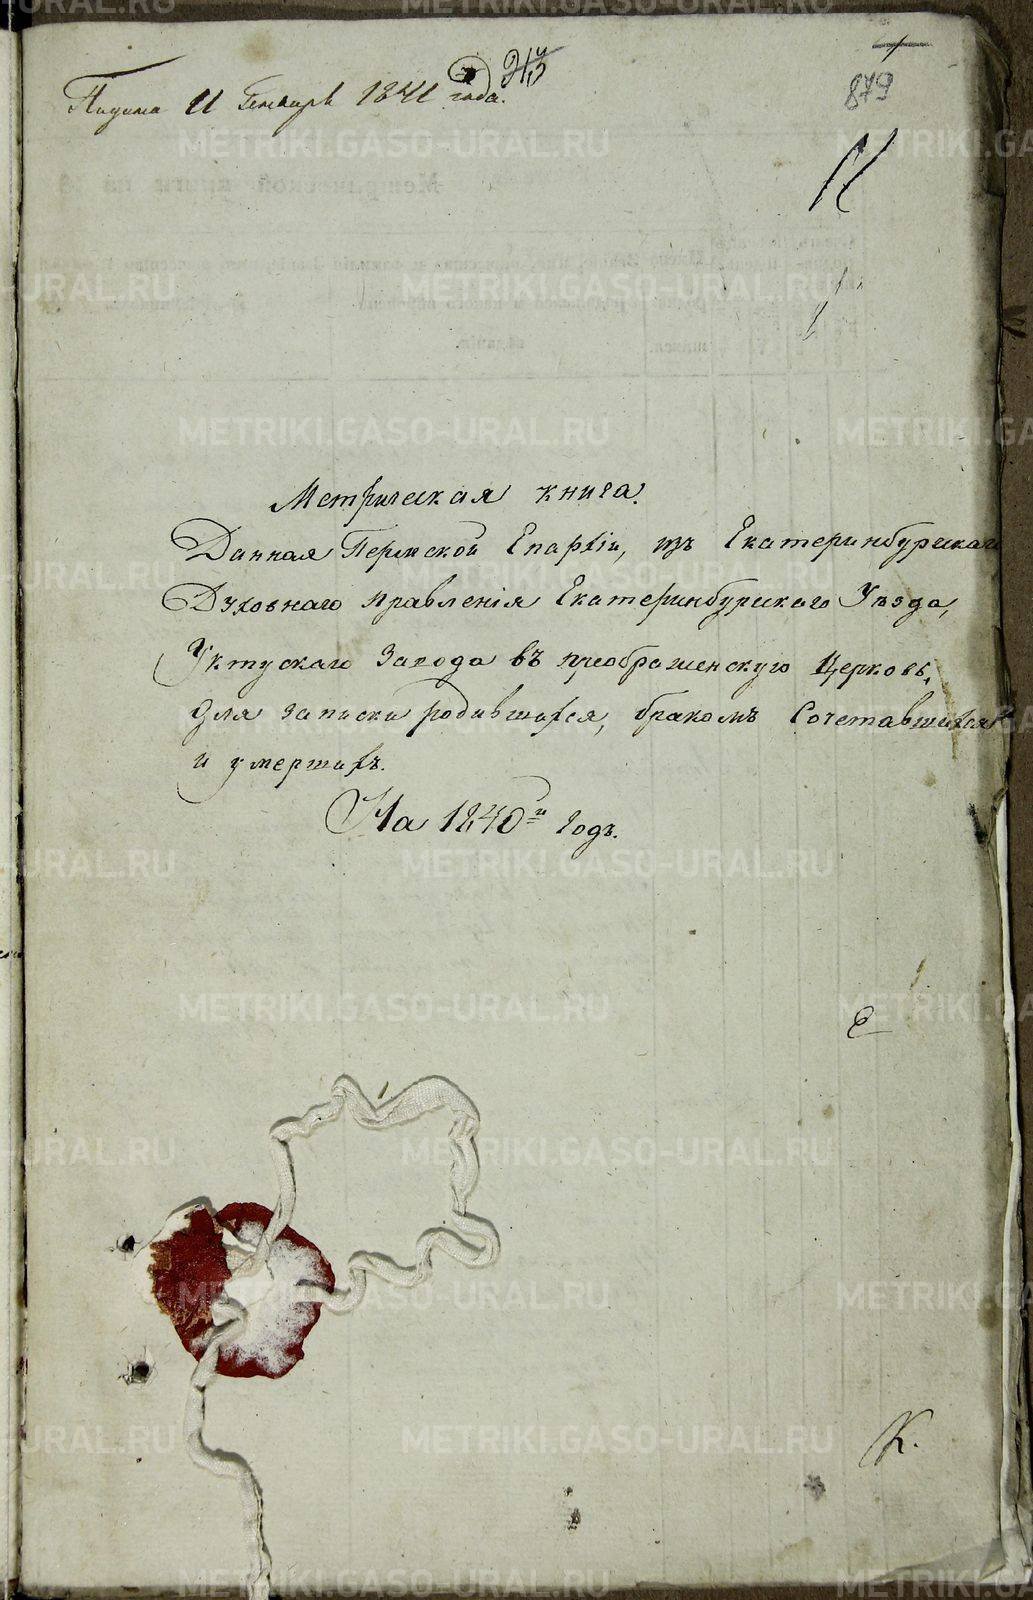 Подана 11 Генваря 1841 года.
879
Метрическая книга.
Данная Пермской Епархіи, изъ Екатеринбурскаго
Духовнаго правленія Екатеринбурскаго Уѣзда,
Уктускаго Завода въ преображенскую Церковь,
для записки родившихся, бракомъ Сочетавшихся
и умершихъ.
На 1840й годъ.
К.
METRIKI.GASO-URAL.RU